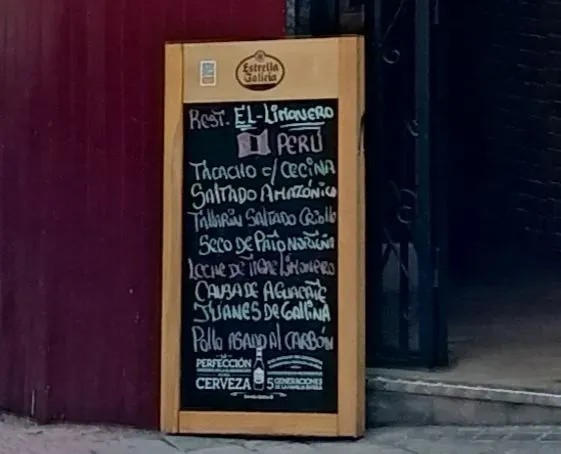 Estrella
Galicia
REST. EL-LIMONERO
PERÚ
TACACHO C/CECINA
SALTADO AMAZÓNICO
TALLARIN SALTADO CRIOLLO
SECO DE PATO NORTEÑA
LECHE DE TIGRE LIMONERO
CAUSA DE AGUACATE
JUANES DE GALLINA
Pollo ASADO AL CARBÓN
LA
PERFECCIÓN
CERVEZA
5 GENERACIONES